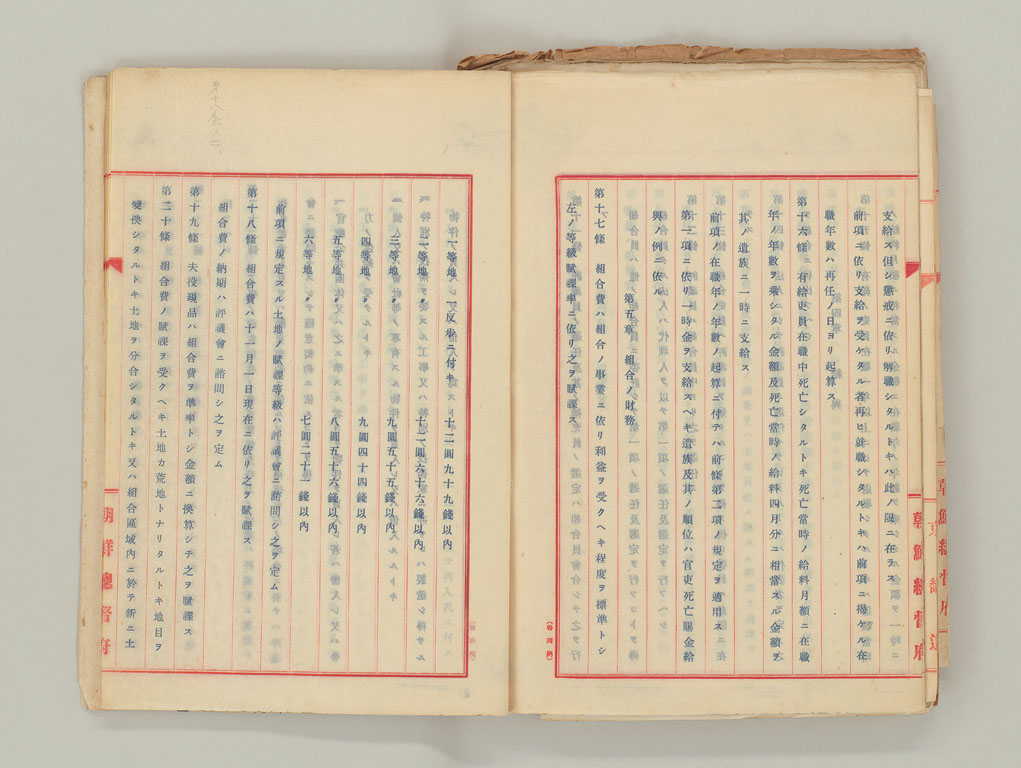 支給ス但シ懲戒ニ依リ解職シタルトキハ此ノ限ニ在ラス
前項ニ依リ支給ヲ受ケタル者再ヒ就職シタルトキハ前項ニ掲ケル在
職年數ハ再任ノ日ヨリ起算ス
第十六條 有給吏員在職中死亡シタルトキ死亡當時ノ給料月額ニ在職
年ノ年數ヲ乘シタル金額及死亡當時ノ給料四月分ニ相當スル金額ヲ
其ノ遺族ニ一時ニ支給ス
前項ノ在職年ノ年數ノ起算ニ付テハ前條第二項ノ規定ヲ適用ス
第一項ニ依リ一時金ヲ支給スヘキ遺族及其ノ順位ハ官吏死亡賜金給
與ノ例ニ依ル
第五章 組合ノ財務
第十七條 組合費ハ組合ノ事業ニ依リ利益ヲ受クヘキ程度ヲ標準トシ
左ノ等級賦課率ニ依リ之ヲ賦課ス
朝鮮總督府
一等地 一反歩ニ付キ 十二圓九十九錢以內
二等地 〃 十一圓六十六錢以內
三等地 〃 九圓五十五錢以內
四等地 〃 九圓四十四錢以內
五等地 〃 八圓五十六錢以內
六等地 〃 七圓二十一錢以內
前項ニ規定スル土地ノ賦課等級ハ評議會ニ諮問シ之ヲ定ム
第十八條 組合費ハ十一月一日現在ニ依リ之ヲ賦課ス
組合費ノ納期ハ評議會ニ諮問シ之ヲ定ム
第十九條 夫役現品ハ組合費ヲ準率トシ金額ニ換算シテ之ヲ賦課ス
第二十條 組合費ノ賦課ヲ受クヘキ土地カ荒地トナリタルトキ地目ヲ
變換シタルトキ土地ヲ分合シタルトキ又ハ組合區域內ニ於テ新ニ土
朝鮮總督府